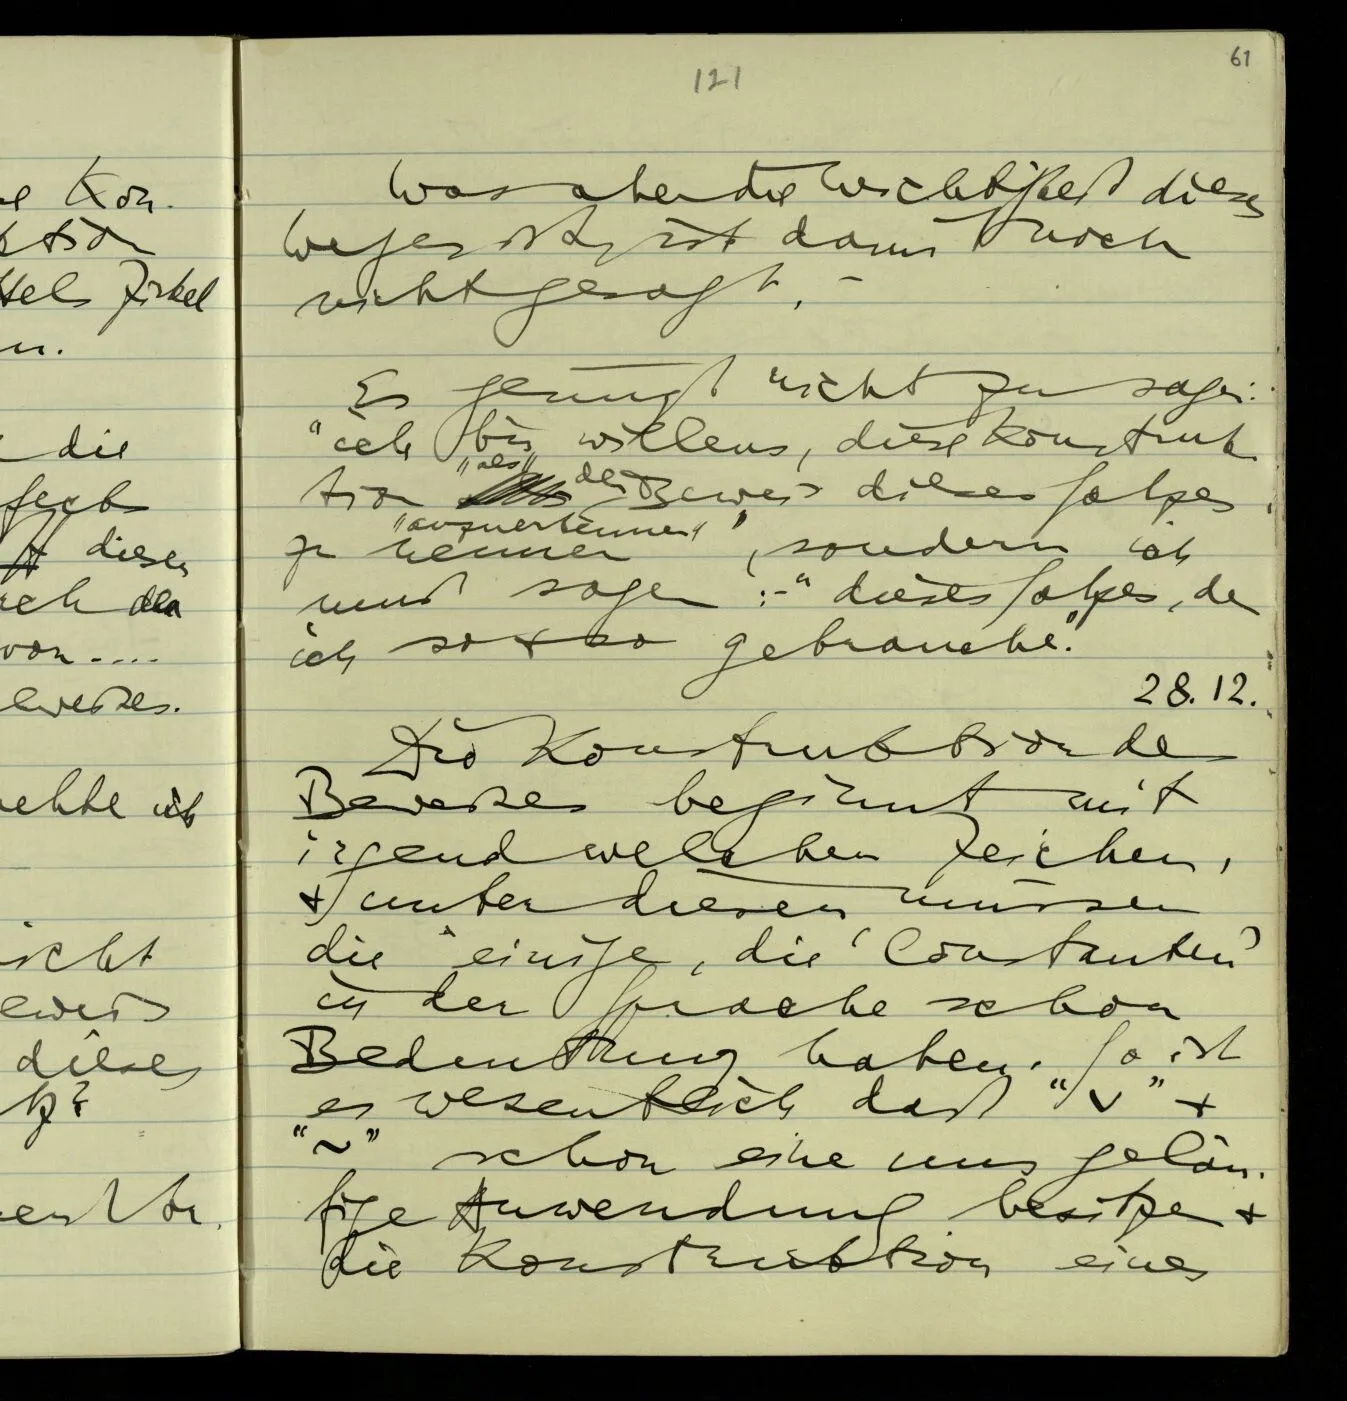 e Kon-
ktion
ttels Zirkel
n.
die
diesen
ach den
von ....
eweises.
öchte ich
nicht
eweis
dieses
tz?
121
61
Was aber die Wichtigkeit dieses
Weges ist, ist damit noch
nicht gesagt. –
Es genügt nicht zu sagen:
"ich bin willens, diese Konstruk
tion "als" den Beweis dieses Satzes
"anzuerkennen"
zu nennen", sondern ich
muß sagen: – "dieses Satzes, den
ich so + so gebrauche."
28.12.
Die Konstruktion des
Beweises beginnt mit
irgend welchen Zeichen,
+ unter diesen müssen
die einige, die 'Constanten'
in der Sprache schon
Bedeutung haben. So ist
es wesentlich daß "v" +
"~" schon eine uns geläu-
fige Anwendung besitzen +
die Konstruktion eines